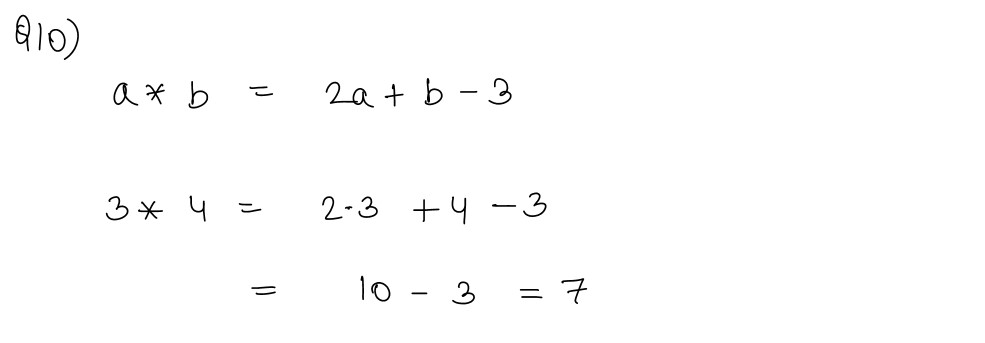 Q10)
a * b = 2a + b - 3
3 * 4 = 2·3 + 4 - 3
= 10 - 3 = 7